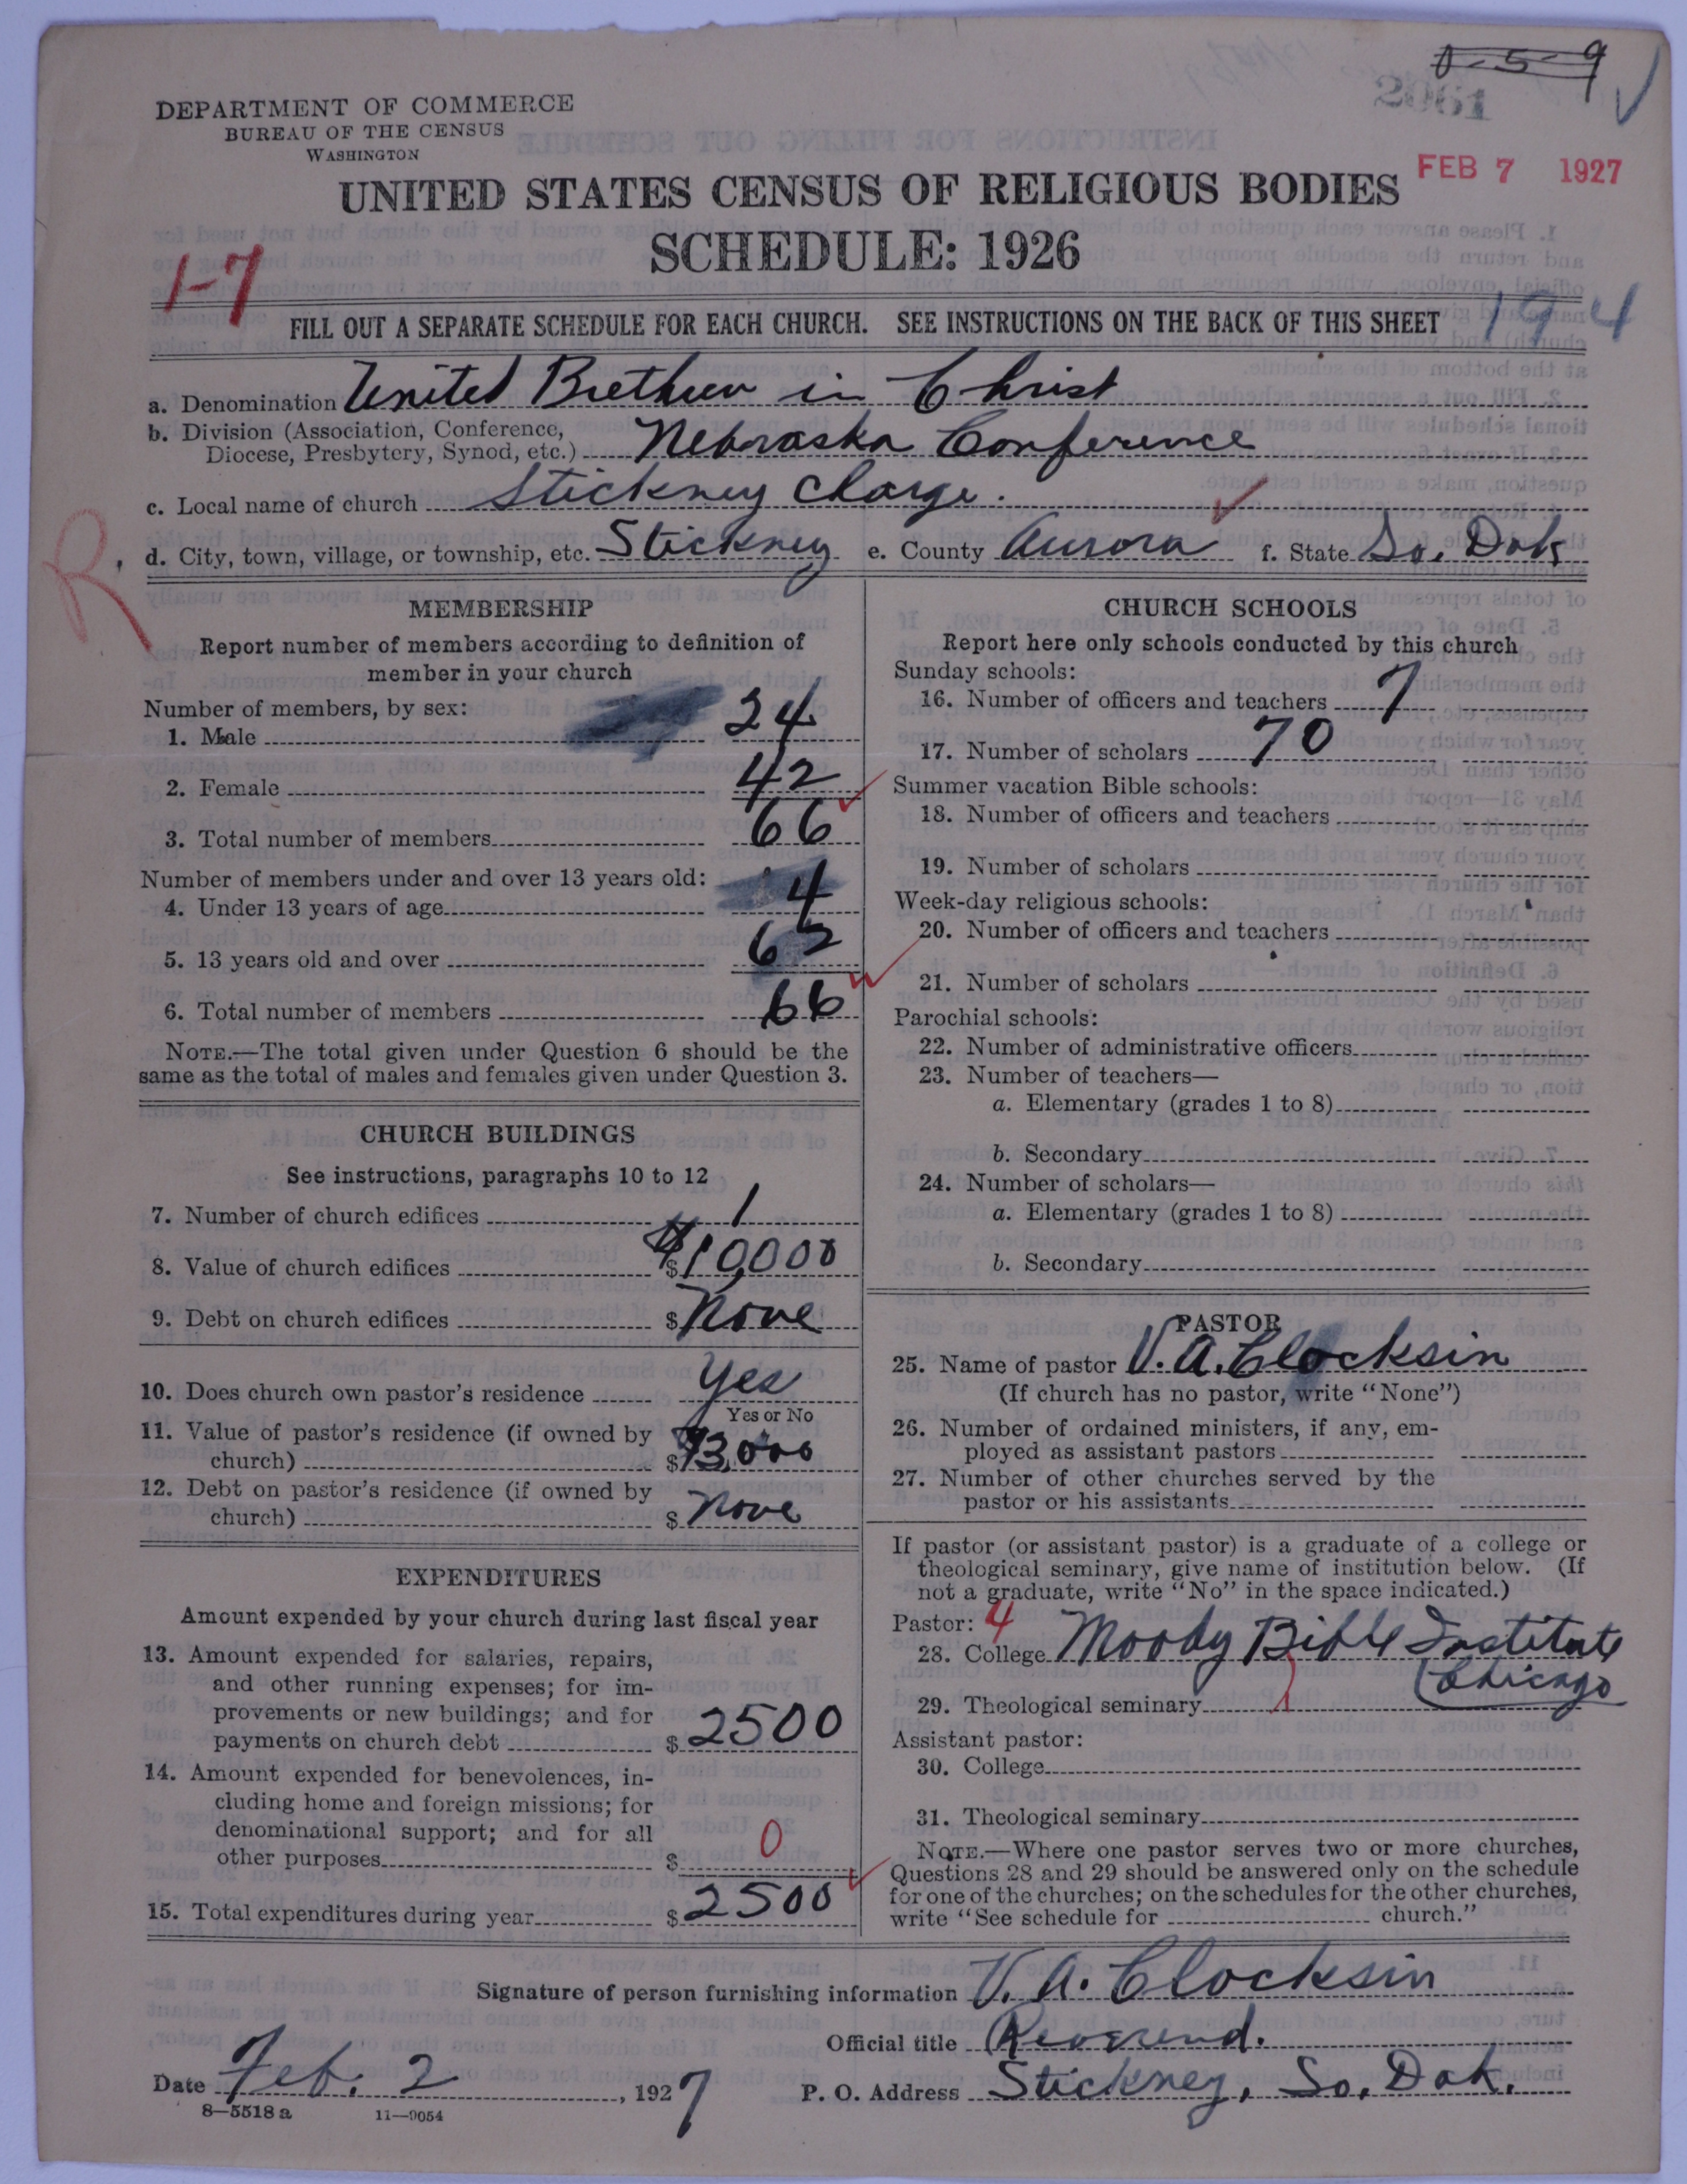 0-5-9
2061
DEPARTMENT OF COMMERCE
BUREAU OF THE CENSUS
WASHINGTON
FEB 7 1927
UNITED STATES CENSUS OF RELIGIOUS BODIES
SCHEDULE: 1926
1-7
194
FILL OUT A SEPARATE SCHEDULE FOR EACH CHURCH. SEE INSTRUCTIONS ON THE BACK OF THIS SHEET
a. Denomination United Brethren in Christ
b. Division (Association, Conference,
Diocese, Presbytery, Synod, etc.) Nebraska Conference
c. Local name of church Stickney Charge.
R
d. City, town, village, or township, etc. Stickney e. County Aurora f. State So. Dak
MEMBERSHIP
Report number of members according to definition of
member in your church
Number of members, by sex:
1. Male 24
2. Female 42
3. Total number of members 66
Number of members under and over 13 years old:
4. Under 13 years of age 4
5. 13 years old and over 62
6. Total number of members 66
NOTE.—The total given under Question 6 should be the
same as the total of males and females given under Question 3.
CHURCH BUILDINGS
See instructions, paragraphs 10 to 12
7. Number of church edifices 1
8. Value of church edifices $ $10,000
9. Debt on church edifices $ None
10. Does church own pastor's residence Yes
Yes or No
11. Value of pastor's residence (if owned by
church) $ $3,000
12. Debt on pastor's residence (if owned by
church) $ None
EXPENDITURES
Amount expended by your church during last fiscal year
13. Amount expended for salaries, repairs,
and other running expenses; for im-
provements or new buildings; and for
payments on church debt $ 2500
14. Amount expended for benevolences, in-
cluding home and foreign missions; for
denominational support; and for all
other purposes $ 0
15. Total expenditures during year $ 2500
CHURCH SCHOOLS
Report here only schools conducted by this church
Sunday schools:
16. Number of officers and teachers 7
17. Number of scholars 70
Summer vacation Bible schools:
18. Number of officers and teachers
19. Number of scholars
Week-day religious schools:
20. Number of officers and teachers
21. Number of scholars
Parochial schools:
22. Number of administrative officers
23. Number of teachers—
a. Elementary (grades 1 to 8)
b. Secondary
24. Number of scholars—
a. Elementary (grades 1 to 8)
b. Secondary
PASTOR
25. Name of pastor V. A. Clocksin
(If church has no pastor, write "None")
26. Number of ordained ministers, if any, em-
ployed as assistant pastors
27. Number of other churches served by the
pastor or his assistants
If pastor (or assistant pastor) is a graduate of a college or
theological seminary, give name of institution below. (If
not a graduate, write "No" in the space indicated.)
Pastor: 4
28. College Moody Bible Institute
Chicago
29. Theological seminary
Assistant pastor:
30. College
31. Theological seminary
NOTE.—Where one pastor serves two or more churches,
Questions 28 and 29 should be answered only on the schedule
for one of the churches; on the schedules for the other churches,
write "See schedule for church."
Signature of person furnishing information V. A. Clocksin
Official title Reverend.
Date Feb. 2, 1927 P. O. Address Stickney, So. Dak.
8—5518 a 11—9054